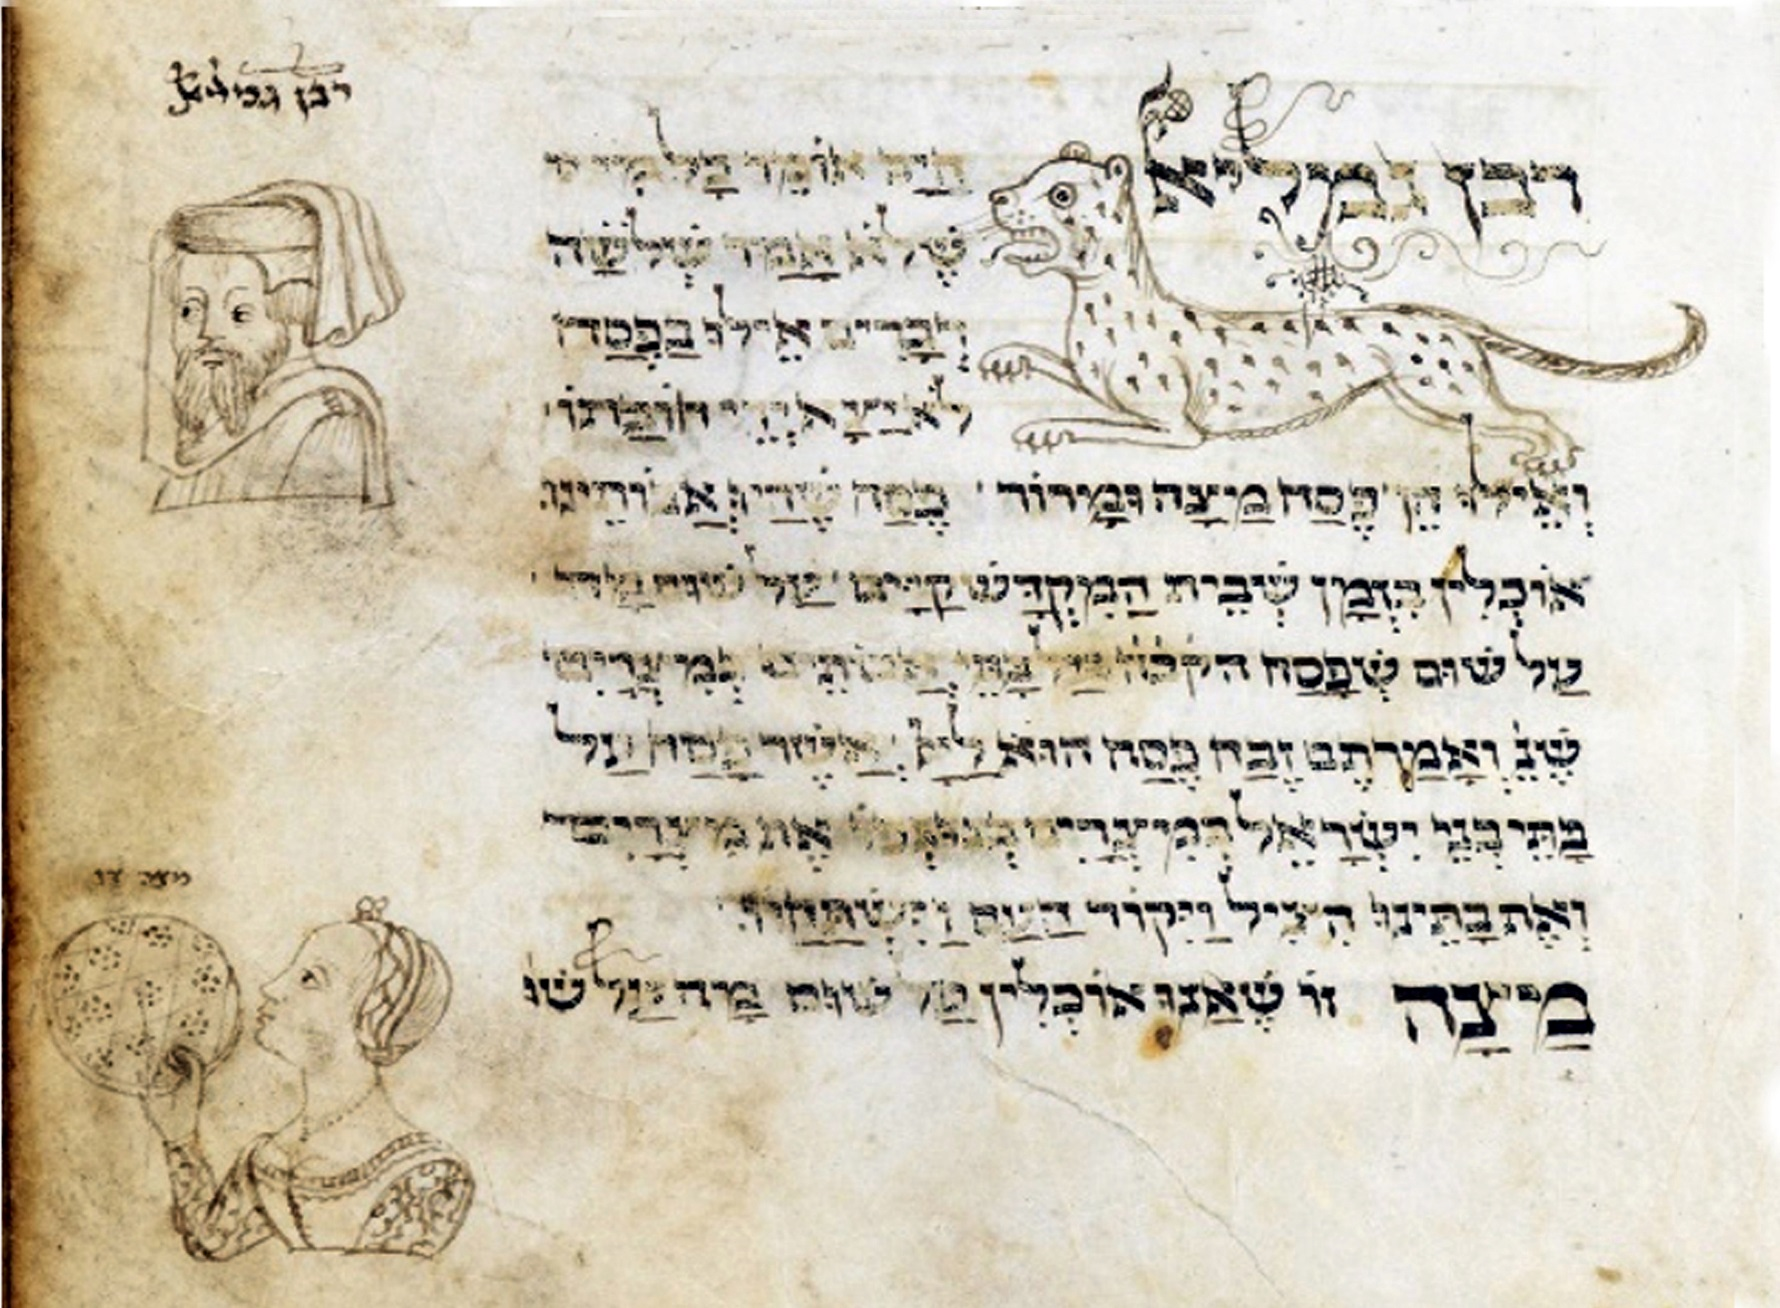 רבן גמליאל
רבן גמליאל היה אומר כל מי
שלא אמר שלשה
דברים אילו בפסח
לא יצא ידי חובתו
ואילו הן פסח מיצה ומרור · פסח שהיו אבותינו
אוכלין בזמן שבית המקדש קיים על שום מה
על שום שפסח הקבה על בתי במיצרים
שנ ואמרתם זבח פסח הוא ליי אשר פסח על
בתי בני ישראל במיצרים בנגפו את מיצרים
ואת בתינו הציל ויקוד העם וישתחוו
מיצה זו שאנו אוכלין על שום מה על שו
מצה זו